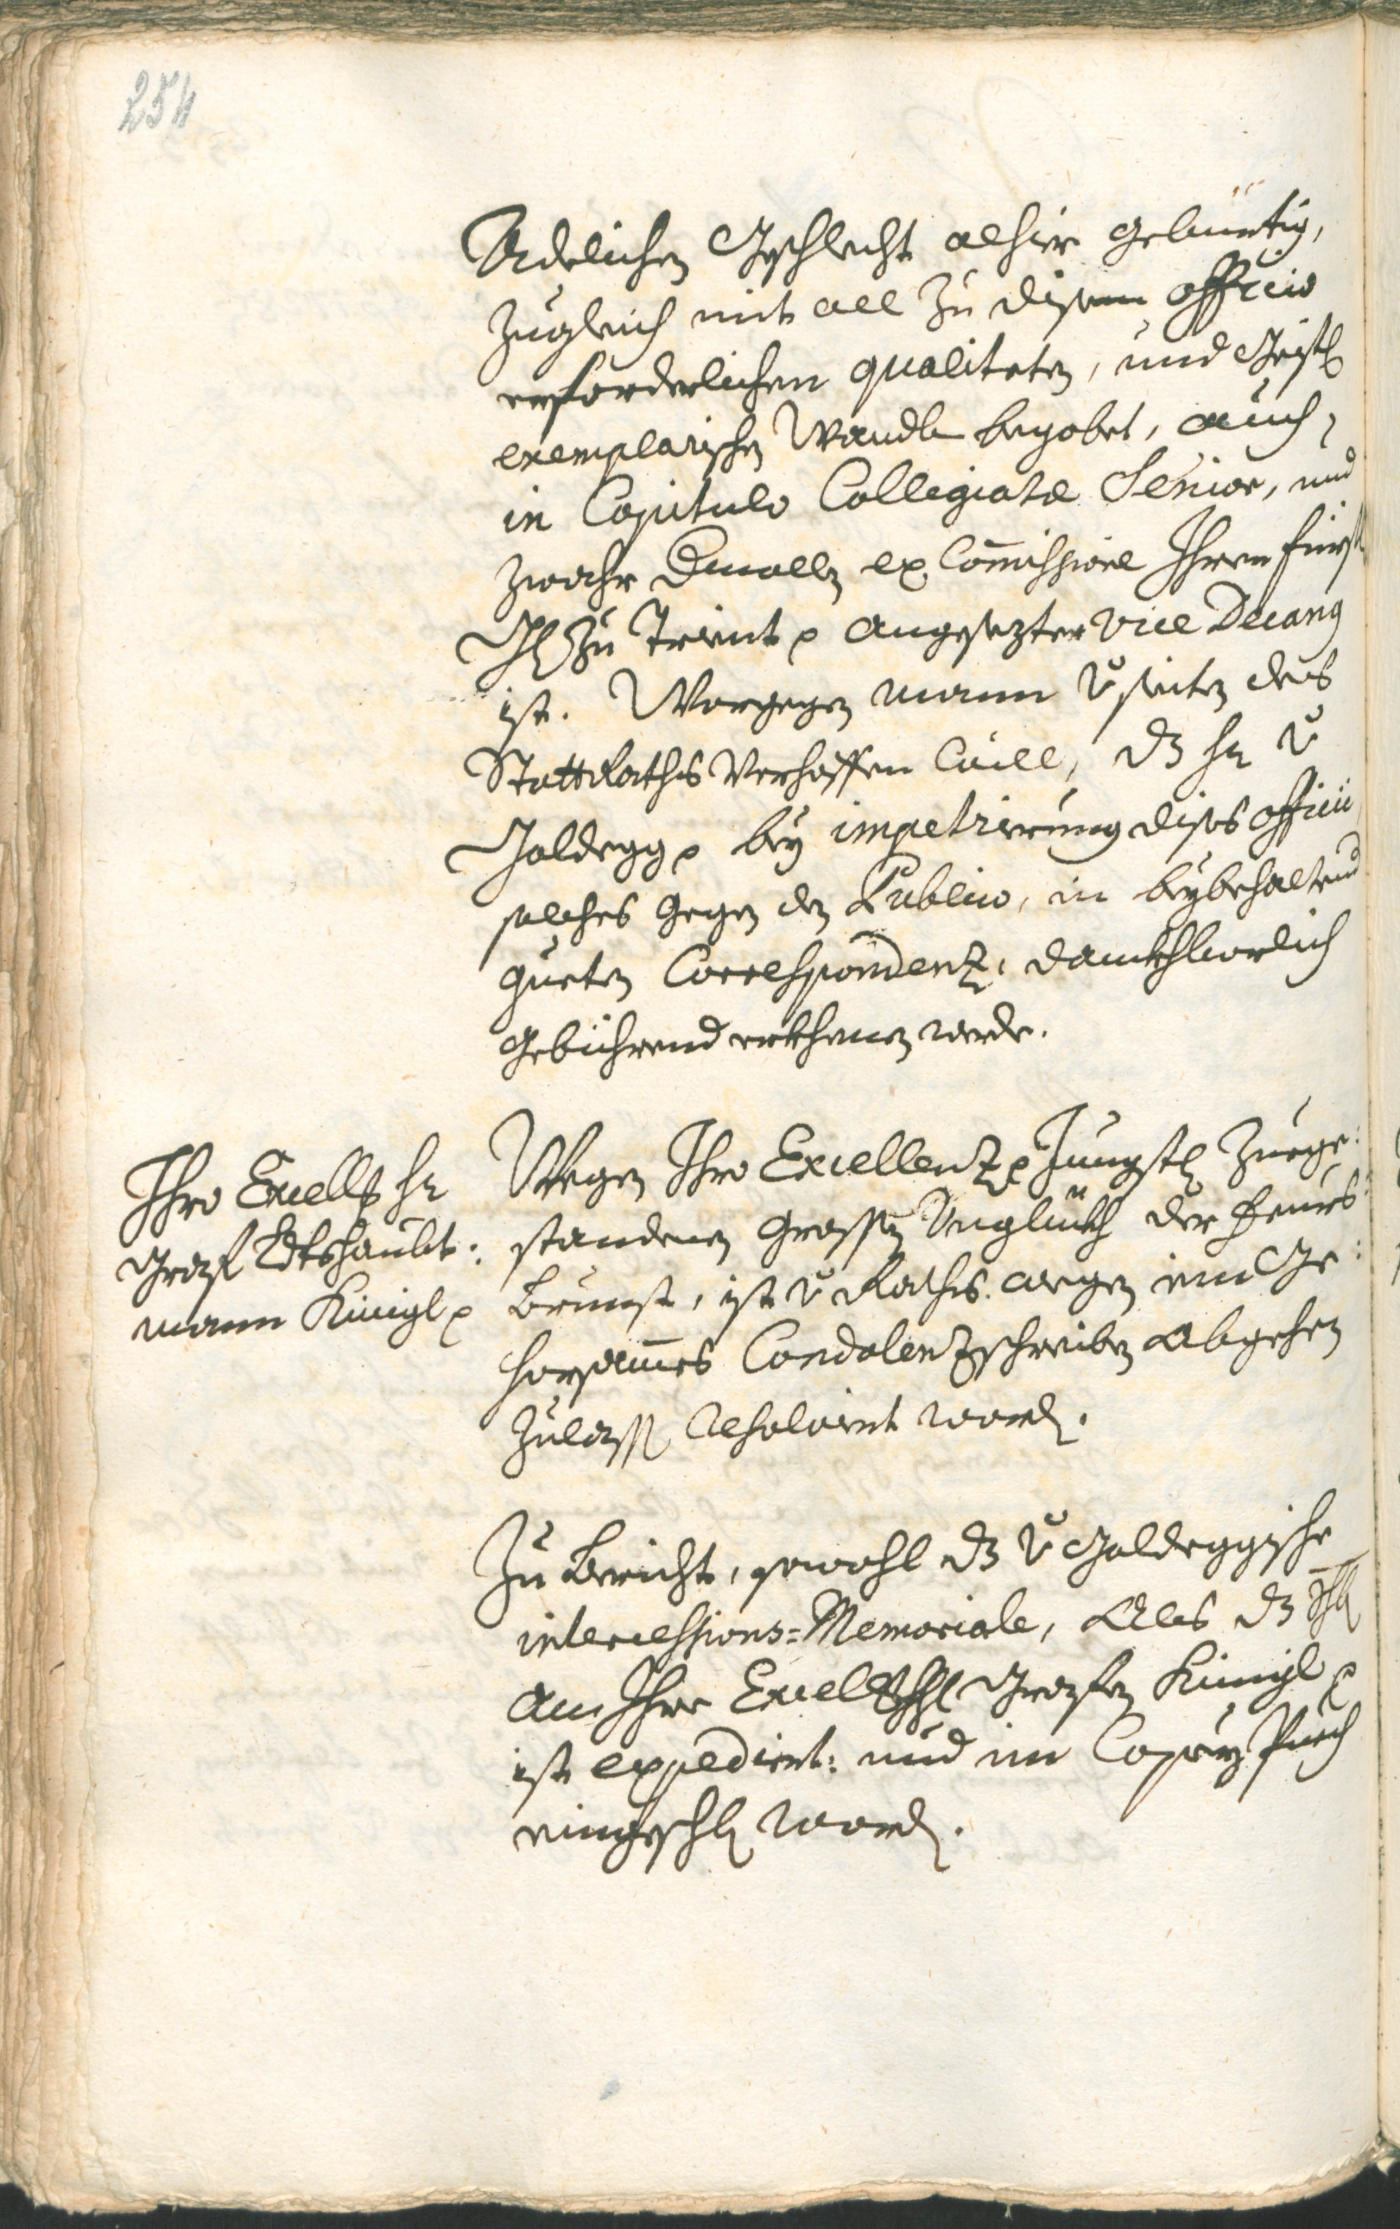 254
Adelichen Gschlecht alhier gebürtig,
Zugleich mit all zu disem officio
erforderlichen qualiteten, und Geistl
exemplarischen Wandl begabet, auch
in Capitulo Collegiatæ Senior, und
zwahr Dmallen ex Com̄issione Ihrer fürstl
Gl zu Trient p angesezter vice Decang
ist. Wargegen mann v seiten des
StattRaths Verhoffen will, dz hr v
Goldegg p bey impetrierung dises officii
solches gegen den Publico, in beybehaltend
gueten Correspondenz, dankhbarlich
gebührend erkhenen werde.
Ihro Excellz hr
Graf Ldtshaubt:
mann Künigl p
Wegen Ihro Excellenz p Jüngstl Zuege:
standenen grossen Unglükh der feurs:
brunst, ist v Raths wegen ein Ge:
horsammes Condolenzschreiben Abgehen
zulassen resolviert worden.
Zu Bericht, sowohl dz v Goldeggische
intercessions=Memoriale, Als dz
an Ihre Excellz Grafen Künigl p
ist expediert: und im Copey Puech
eingeschl worden.